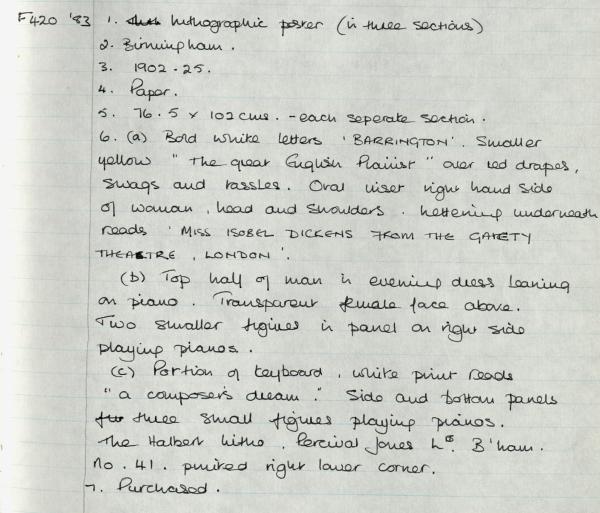 F420 '83 1. Lithographic poster (in three sections)
2. Birmingham.
3. 1902-25.
4. Paper.
5. 76.5 x 102 cms. - each seperate section.
6. (a) Bold white letters 'BARRINGTON'. Smaller
yellow "The great English Pianist" over red drapes,
swags and tassles. Oval inset right hand side
of woman, head and shoulders. Lettering underneath
reads 'MISS ISOBEL DICKENS FROM THE GAIETY
THEATRE, LONDON'.
(b) Top half of man in evening dress leaning
on piano. Transparent female face above.
Two smaller figures in panel on right side
playing pianos.
(c) Portion of keyboard, white print reads
"a composer's dream." Side and bottom panels
three small figures playing pianos.
The Halbert Litho, Percival Jones Ld. B'ham.
No. 41. printed right lower corner.
7. Purchased.